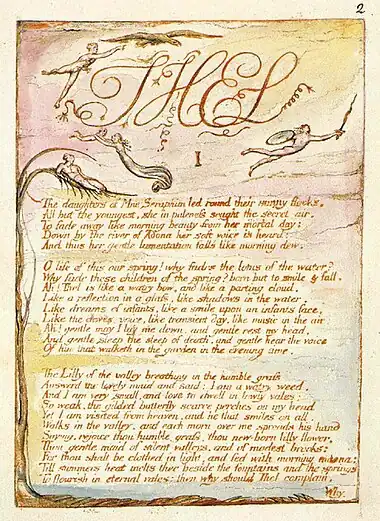 2
THEL
I
The daughters of Mne Seraphim led round their sunny flocks,
All but the youngest, she in paleness sought the secret air.
To fade away like morning beauty from her mortal day:
Down by the river of Adona her soft voice is heard:
And thus her gentle lamentation falls like morning dew.
O life of this our spring! why fades the lotus of the water?
Why fade these children of the spring? born but to smile & fall.
Ah! Thel is like a watry bow, and like a parting cloud,
Like a reflection in a glass, like shadows in the water,
Like dreams of infants, like a smile upon an infants face,
Like the doves voice, like transient day, like music in the air
Ah! gentle may I lay me down, and gentle rest my head,
And gentle sleep the sleep of death, and gentle hear the voice
Of him that walketh in the garden in the evening time.
The Lilly of the valley breathing in the humble grass
Answerd the lovely maid and said: I am a watry weed,
And I am very small, and love to dwell in lowly vales;
So weak, the gilded butterfly scarce perches on my head
Yet I am visited from heaven, and he that smiles on all
Walks in the valley, and each morn over me spreads his hand
Saying, rejoice thou humble grass, thou new-born lilly flower,
Thou gentle maid of silent valleys, and of modest brooks:
For thou shalt be clothed in light, and fed with morning manna:
Till summers heat melts thee beside the fountains and the springs
To flourish in eternal vales: then why should Thel complain,
Why